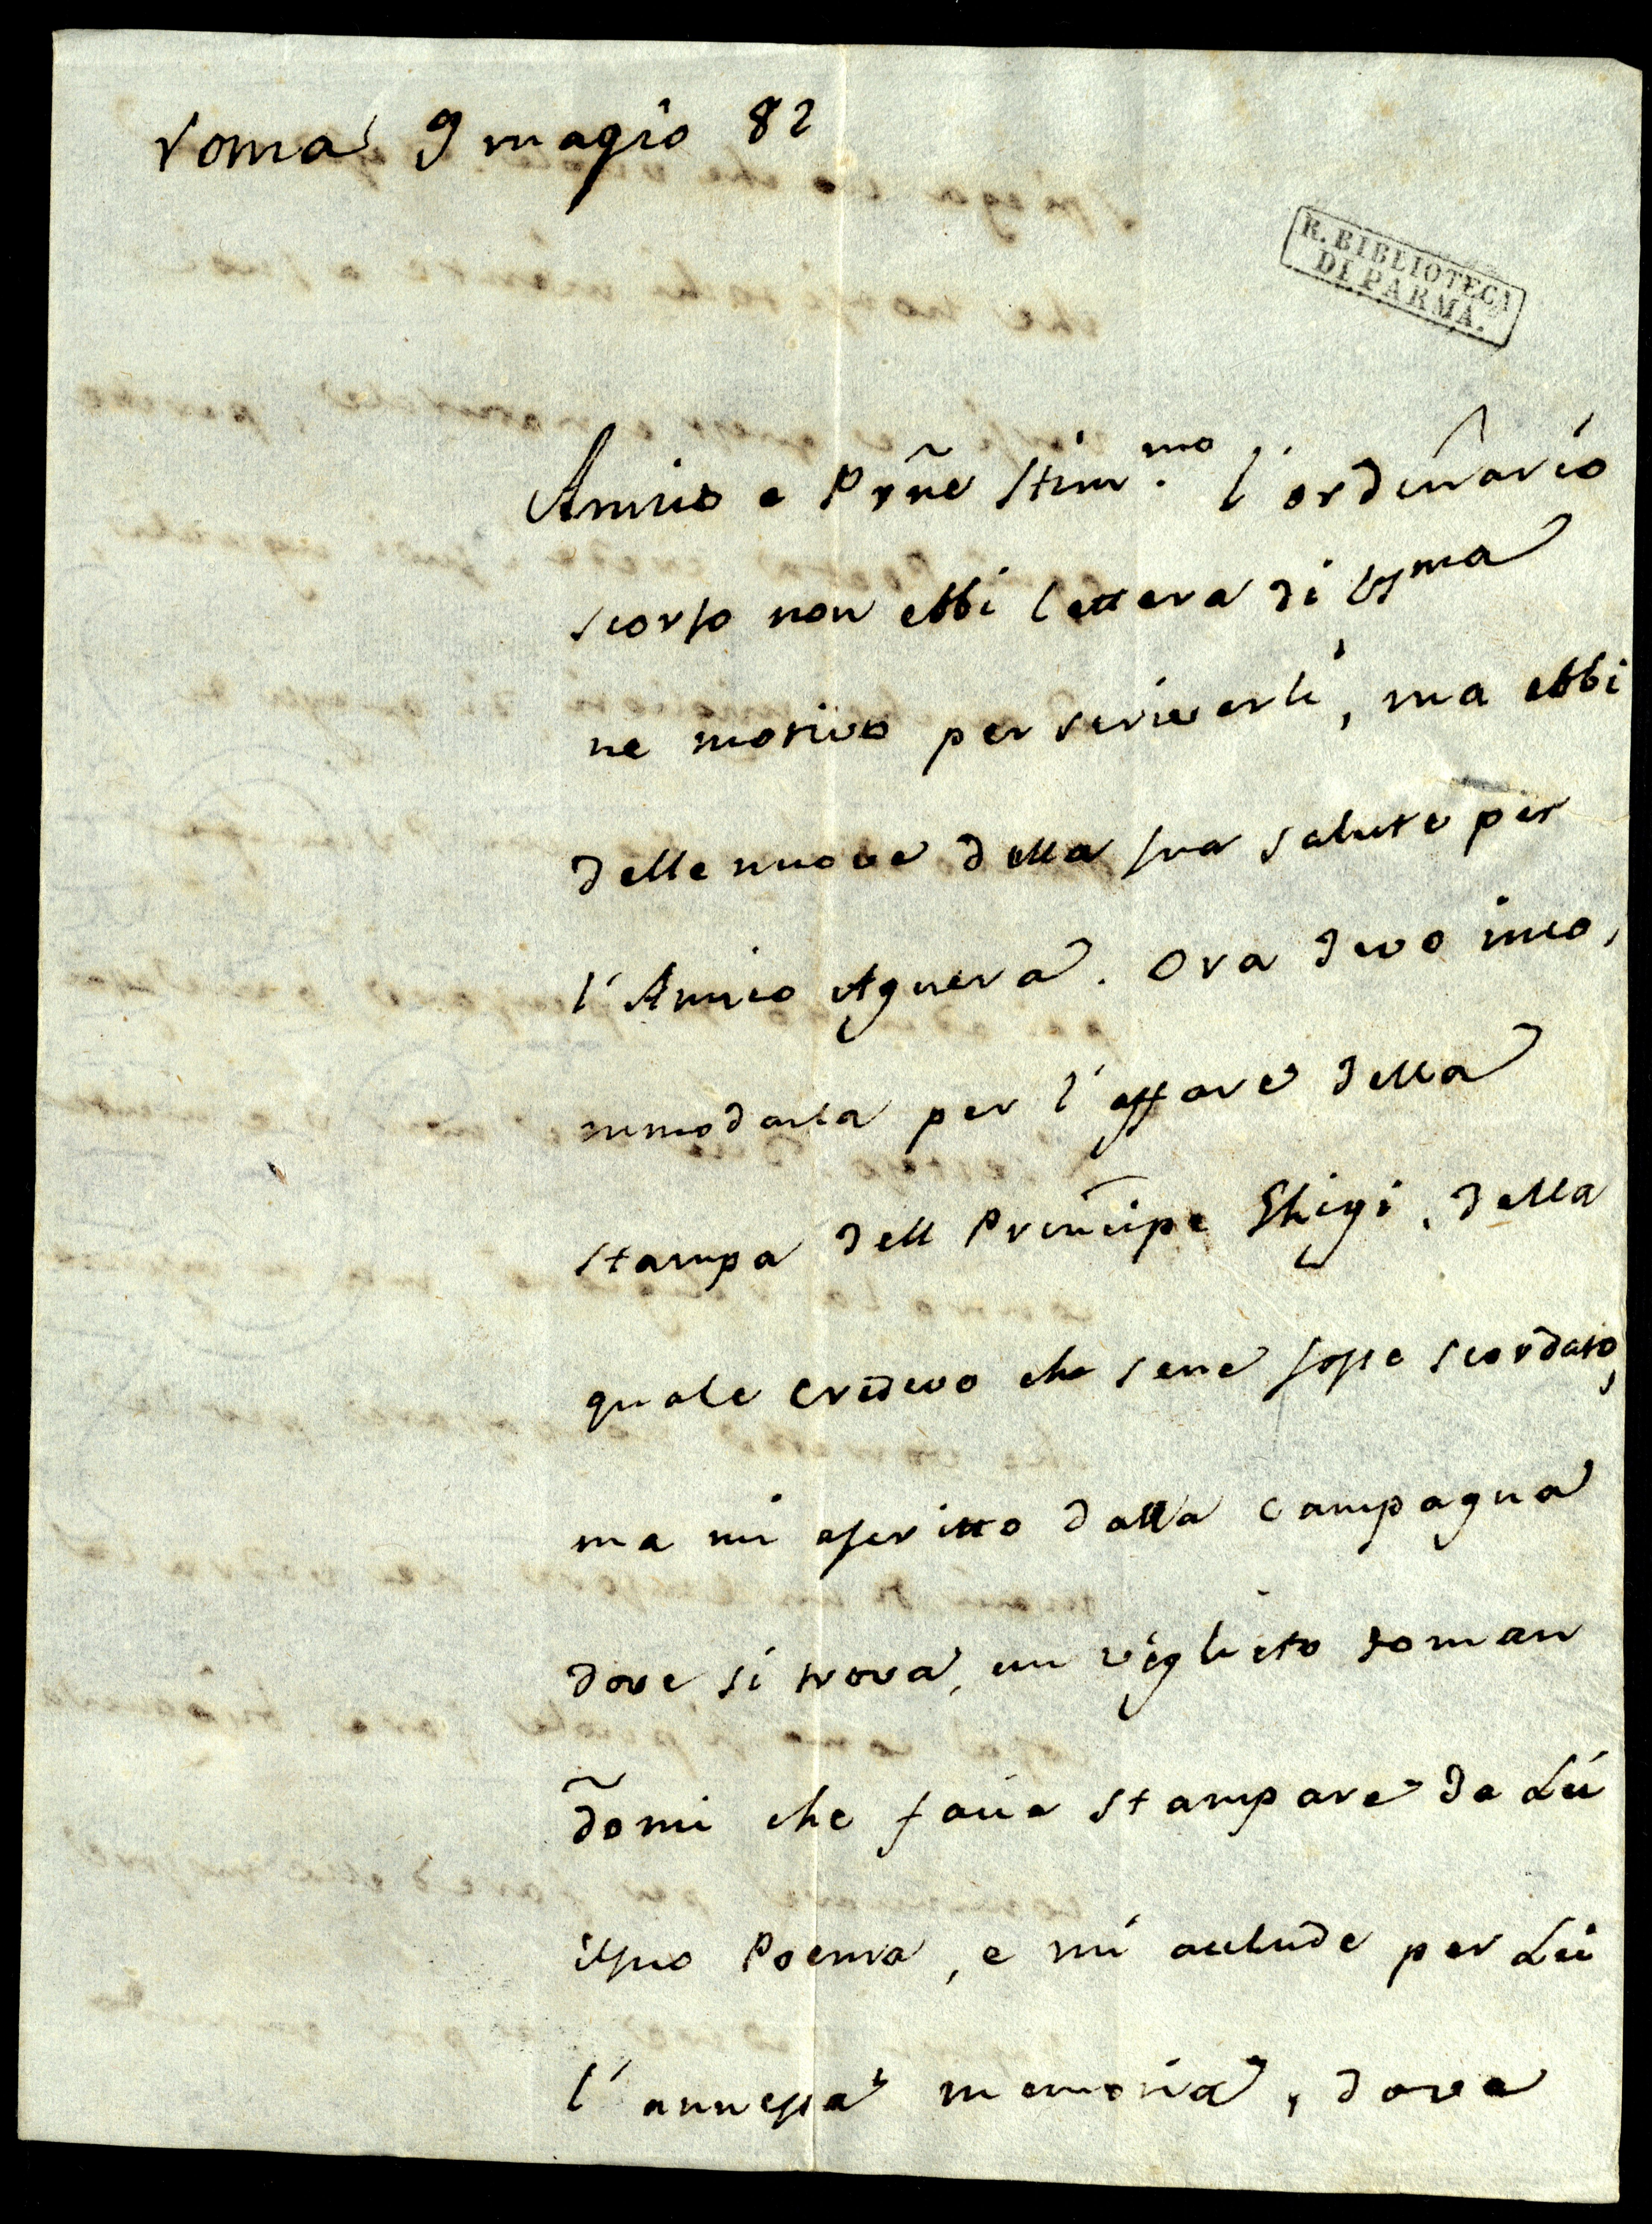 roma 9 magio 82
R. BIBLIOTECA
DI PARMA.
Amico e Prñe Stim.mo l'ordinario
scorso non ebbi lettera di VSma
ne motivo per scriverli, ma ebbi
delle nuove della sua salute per
l'Amico Aguera. Ora devo inco,
mmodarla per l'affare della
stampa dell Principe Ghigi, della
quale credevo che sene fosse scordato,
ma mi a scritto dalla campagna
dove si trova, un viglieto roman
domi che facia stampare da Lui
il suo Poema, e mi aclude per Lui
l'annessa memoria, dove